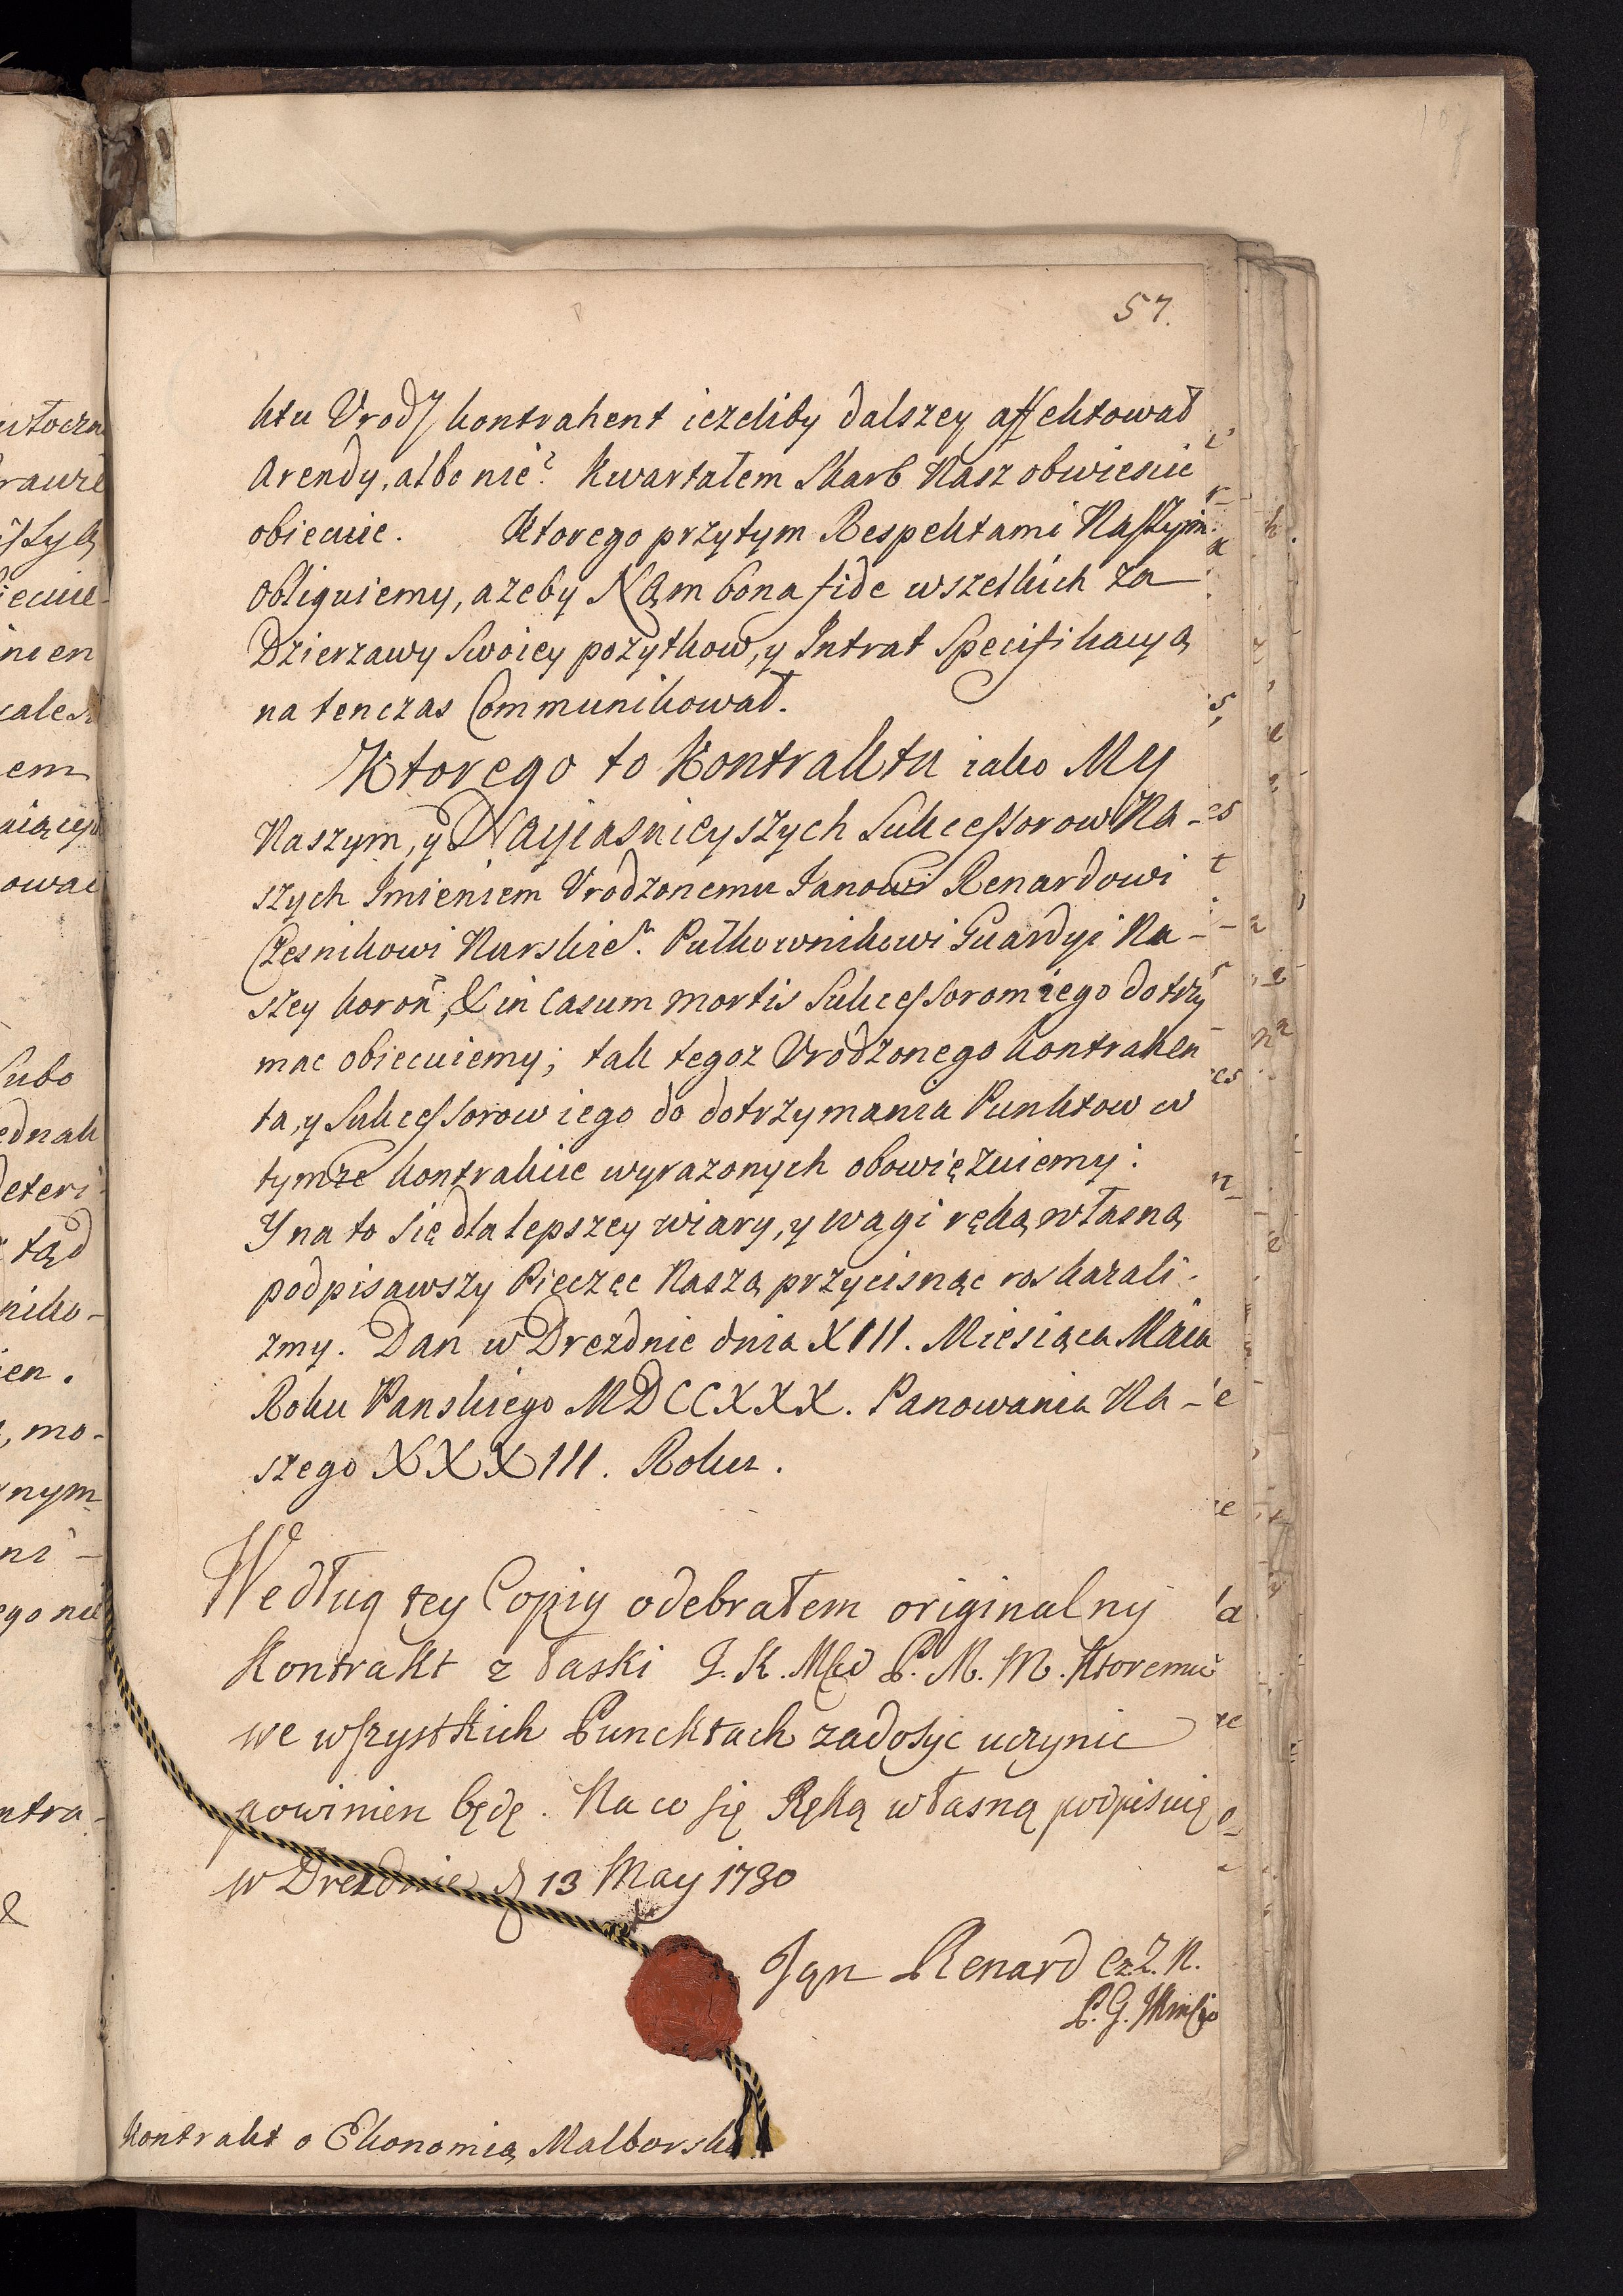 107
57.
ktu Vrodz kontrahent iezeliby dalszey affektował
Arendy, albo nie? Kwartałem Skarb Nasz obwiescic
obiecuie. Ktorego przytym Respektami Naszymi
obliguiemy, azeby Nam bona fide wszelkich za
Dzierzawy Swoiey pozytkow, y Intrat Specifikacyą
na tenczas Communikował.
Ktorego to Kontraktu iako My
Naszym, y Nayiasnieyszych Sukcessorow Na-
szych Imieniem Vrodzonemu Janowi Renardowi
Czesnikowi Nurskie͠. Pułkownikowi Guardyi Na-
szey koron͠, & in Casum mortis Sukcessorom iego dotrzy
mac obiecuiemy; tak tegoz Vrodzonego kontrahen
ta, y Sukcessorow iego do dotrzymania Punktow w
tymze kontrakcie wyrazonych obowięzuiemy:
Y na to się dla lepszey wiary, y wagi ręką własną
podpisawszy Pieczęc Naszą przycisnąc roskazali-
zmy. Dan w Dreznie dnia XIII. Miesiąca Maia
Roku Panskiego MDCCXXX. Panowania Na-
szego XXXIII. Roku.
Według tey Copiy odebrałem originalny
Kontrakt z łaski J. K. Mści P. M. M. Ktoremu
we wszystkich Puncktach zadosyc uczynic
powinien będę. Na co się Ręką własną podpisuię
w Dreznie d 13 May 1730
Jan Renard Cz. Z. N.
P. G.
Kontrakt o Ekonomią Malborską